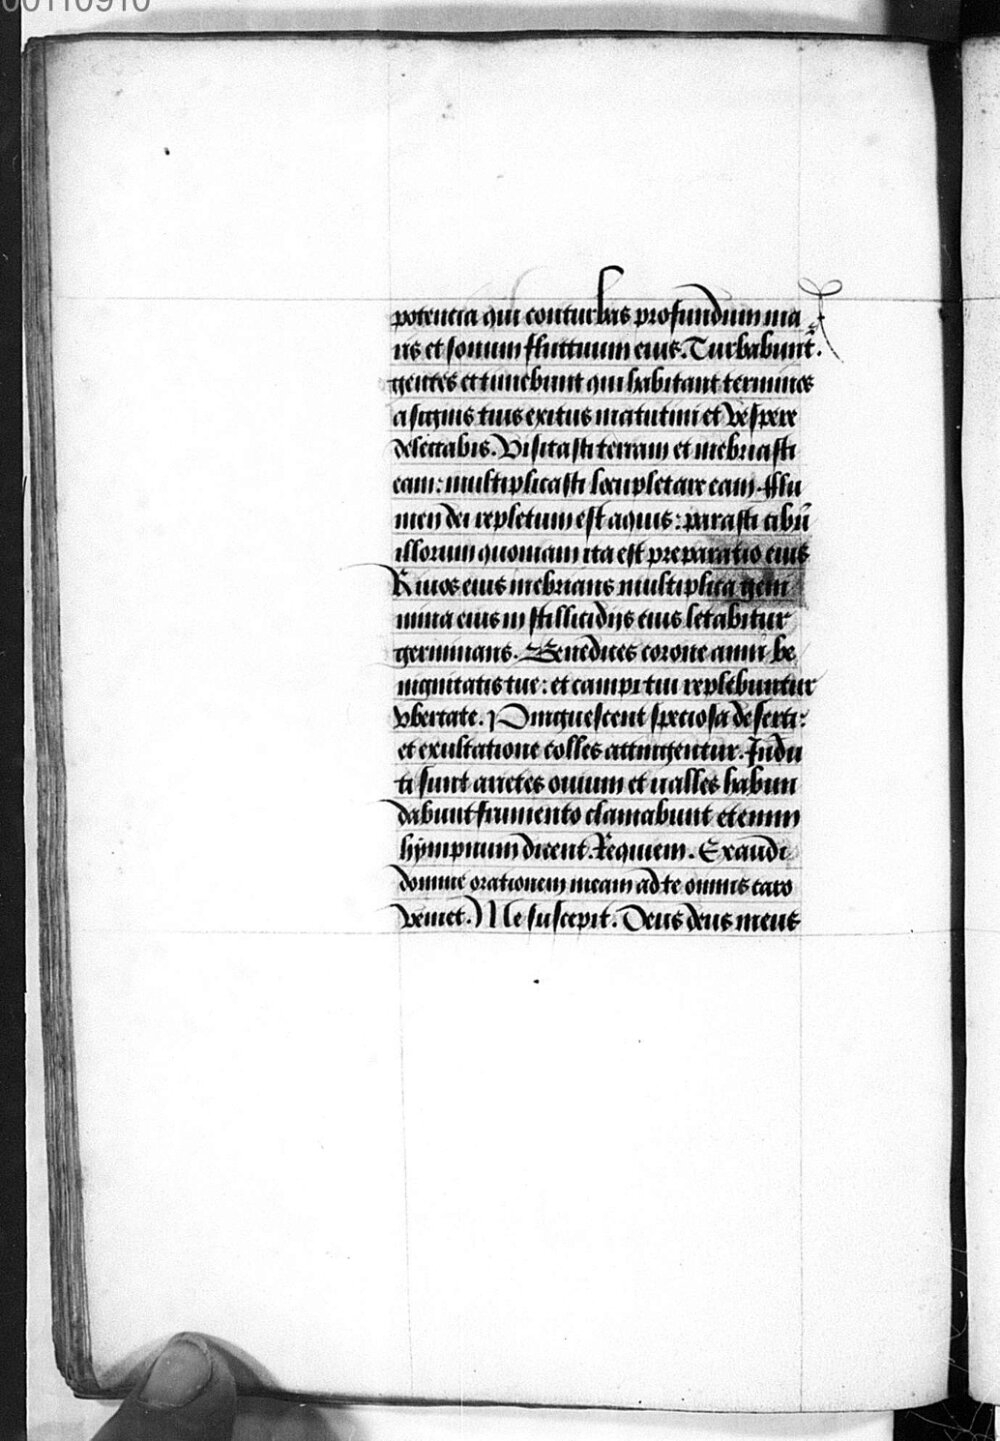 00110910
potencia qui conturbas profundum ma
ris et sonum fluctuum eius. Turbabunt̃.
gentes et timebunt qui habitant terminos
a signis tuis exitus matutini et vespere
delectabis. Visitasti terram et inebriasti
eam: multiplicasti locupletare eam. Flu
men dei repletum est aquis: parasti cibũ
illorum quoniam ita est preparatio eius
Riuos eius inebrians multiplica gem
mina eius in stillicidiis eius letabitur
germinans. Benedices corone anni be
nignitatis tue: et campi tui replebuntur
vbertate. Pinguescent speciosa deserti:
et exultatione colles attingentur. Indu
ti sunt arietes ouium et ualles habun
dabunt frumento clamabunt etenim
hympnum dicent. Requiem. Exaudi
domine orationem meam ad te omnis caro
veniet. Me suscepit. Deus deus meus